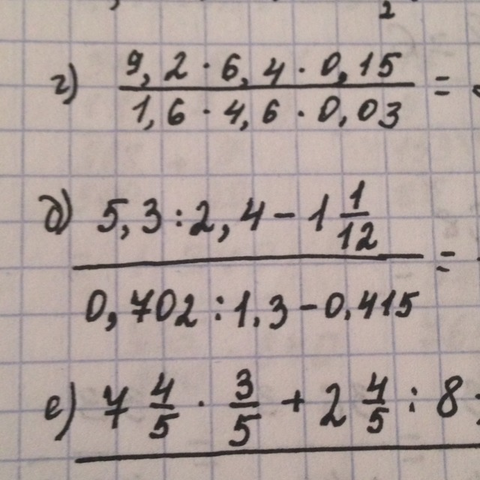 2
г) 9,2 · 6,4 · 0,15
1,6 · 4,6 · 0,03 =
д) 5,3 : 2,4 − 1 1/12
0,702 : 1,3 − 0,415 =
е) 7 4/5 · 3/5 + 2 4/5 : 8